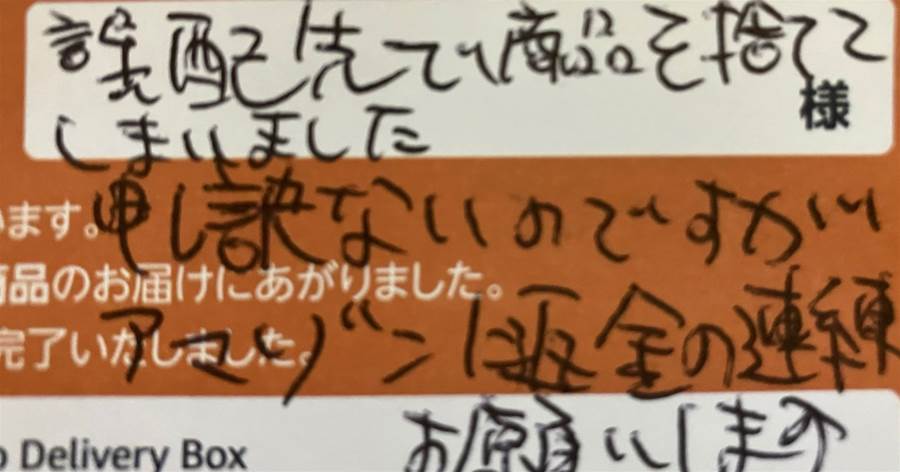 誤配先で商品を捨てて
様
しまいました
います。申し訳ないのですがい
商品のお届けにあがりました。
アマゾンに返金の連練
完了いたしました。
お願いします
o Delivery Box